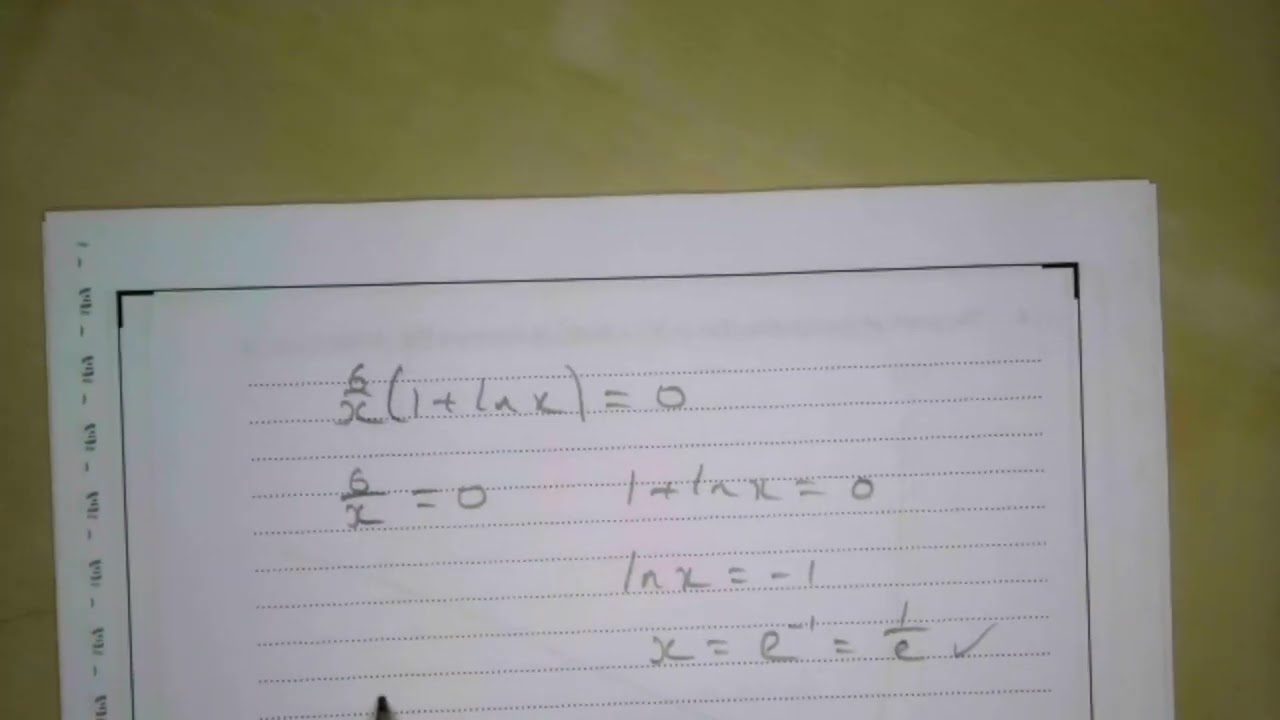 6/x (1 + ln x) = 0
6/x = 0 1 + ln x = 0
ln x = -1
x = e⁻¹ = 1/e ✓